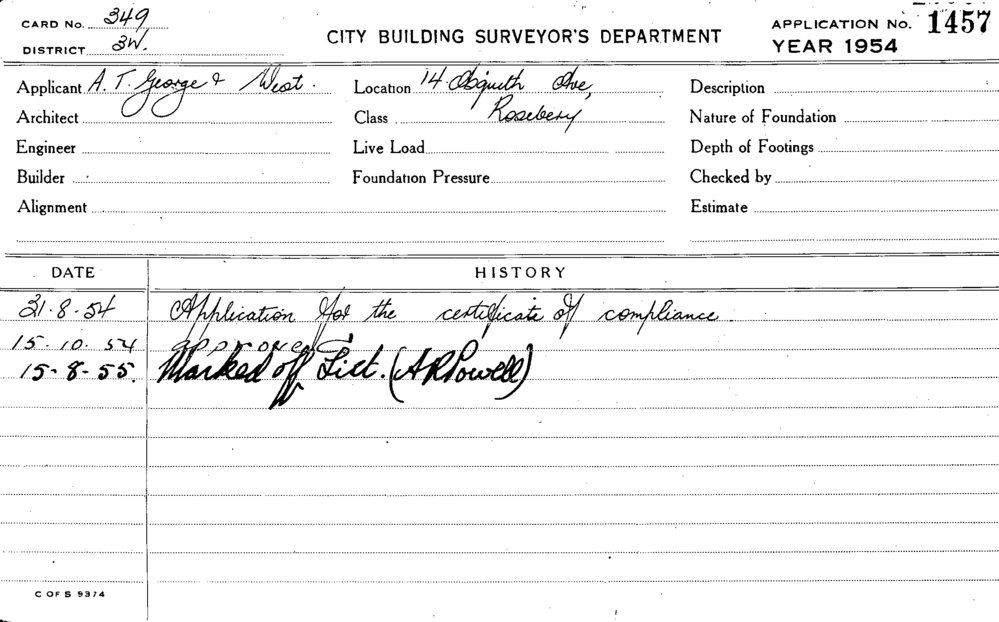 CARD No. 349
DISTRICT 3W.
CITY BUILDING SURVEYOR'S DEPARTMENT
APPLICATION No. 1457
YEAR 1954
Applicant A. T. George & West. Location 14 Asquith Ave, Description
Architect Class Rosebery Nature of Foundation
Engineer Live Load Depth of Footings
Builder Foundation Pressure Checked by
Alignment Estimate
DATE HISTORY
31·8·54 Application for the certificate of compliance.
15·10·54 approved
15-8-55. Marked off List. (A R Powell)
C OF S 9374